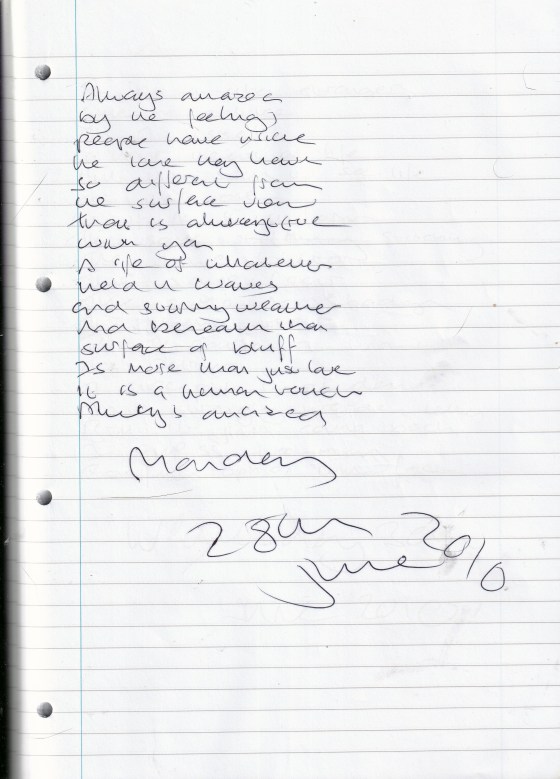 Always amazed
by the feelings
people have inside
the love they have
so different from
the surface view
that is always true
with you
A life of whatever
held in waves
and stormy weather
And beneath that
surface of bluff
Is more than just love
It is a human touch
Always amazed
Monday
28th
June 2010